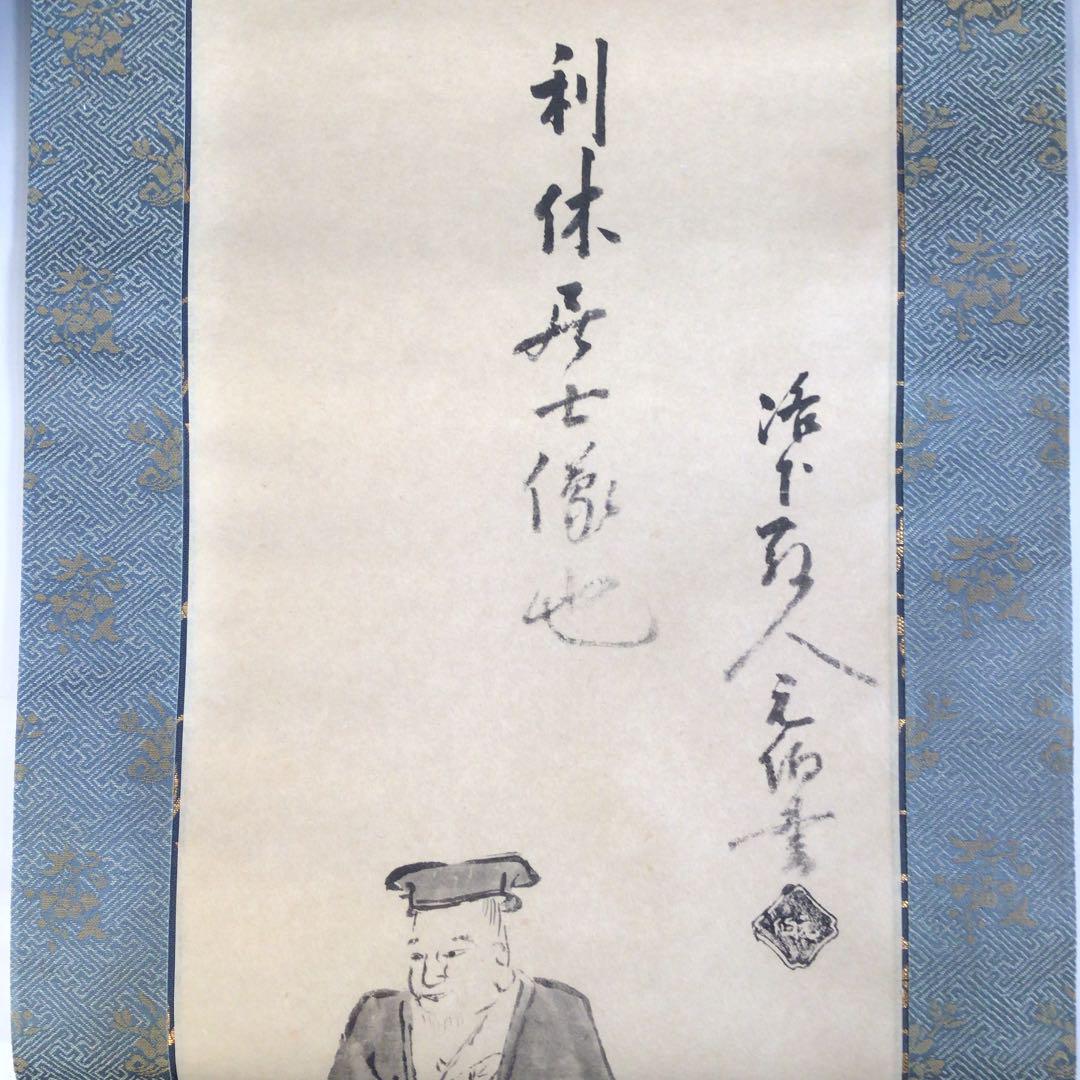 利休居士像也
洛下散人元伯書